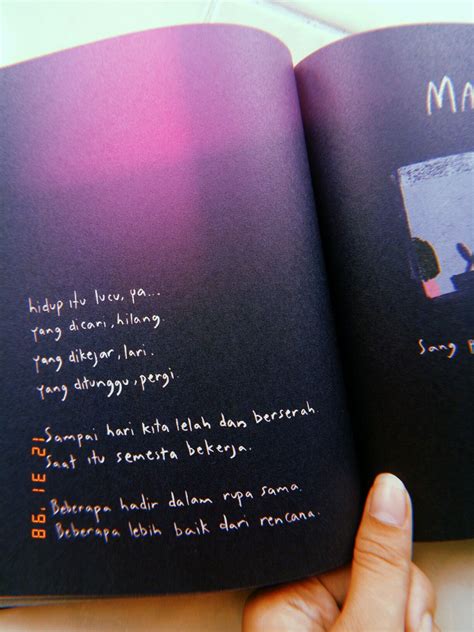 hidup itu lucu, ya...
yang dicari, hilang.
yang dikejar, lari.
yang ditunggu, pergi.
Sampai hari kita lelah dan berserah.
Saat itu semesta bekerja.
Beberapa hadir dalam rupa sama.
Beberapa lebih baik dari rencana.
MA
Sang